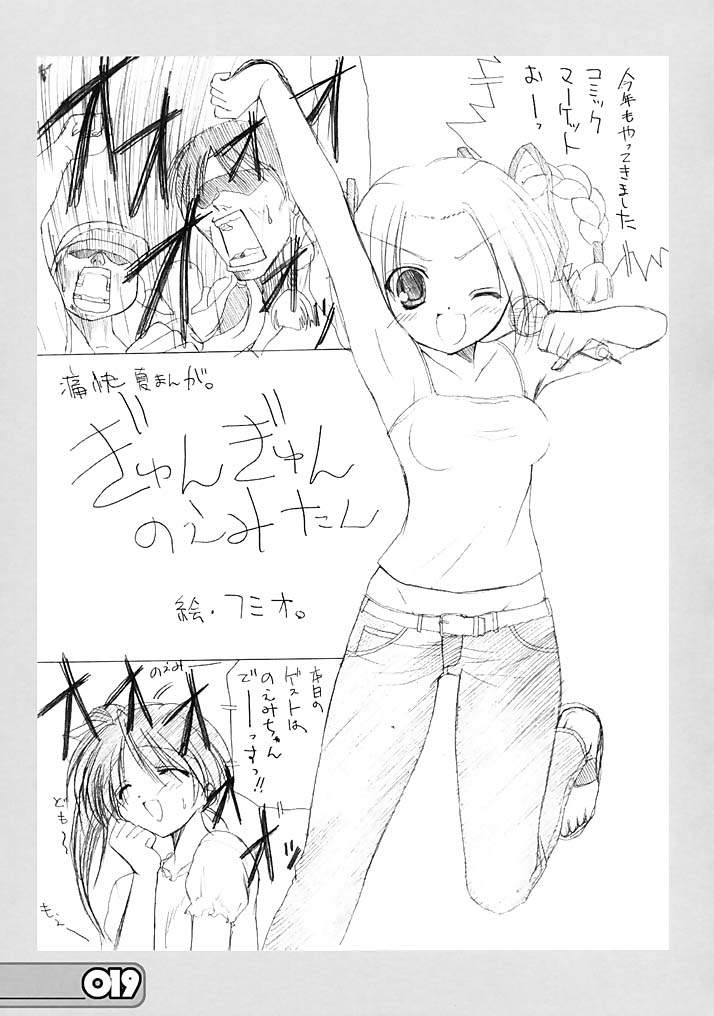 今年もやってきました
コミック
マーケット
おーっ
オオオオオオ
痛快夏まんが。
ぎゅんぎゅん
のえみたん
絵・フミオ。
本日の
ゲストは
のえみちゃん
でーっすっ!!
のえみ
オオオオオ
ども〜
もえー
019